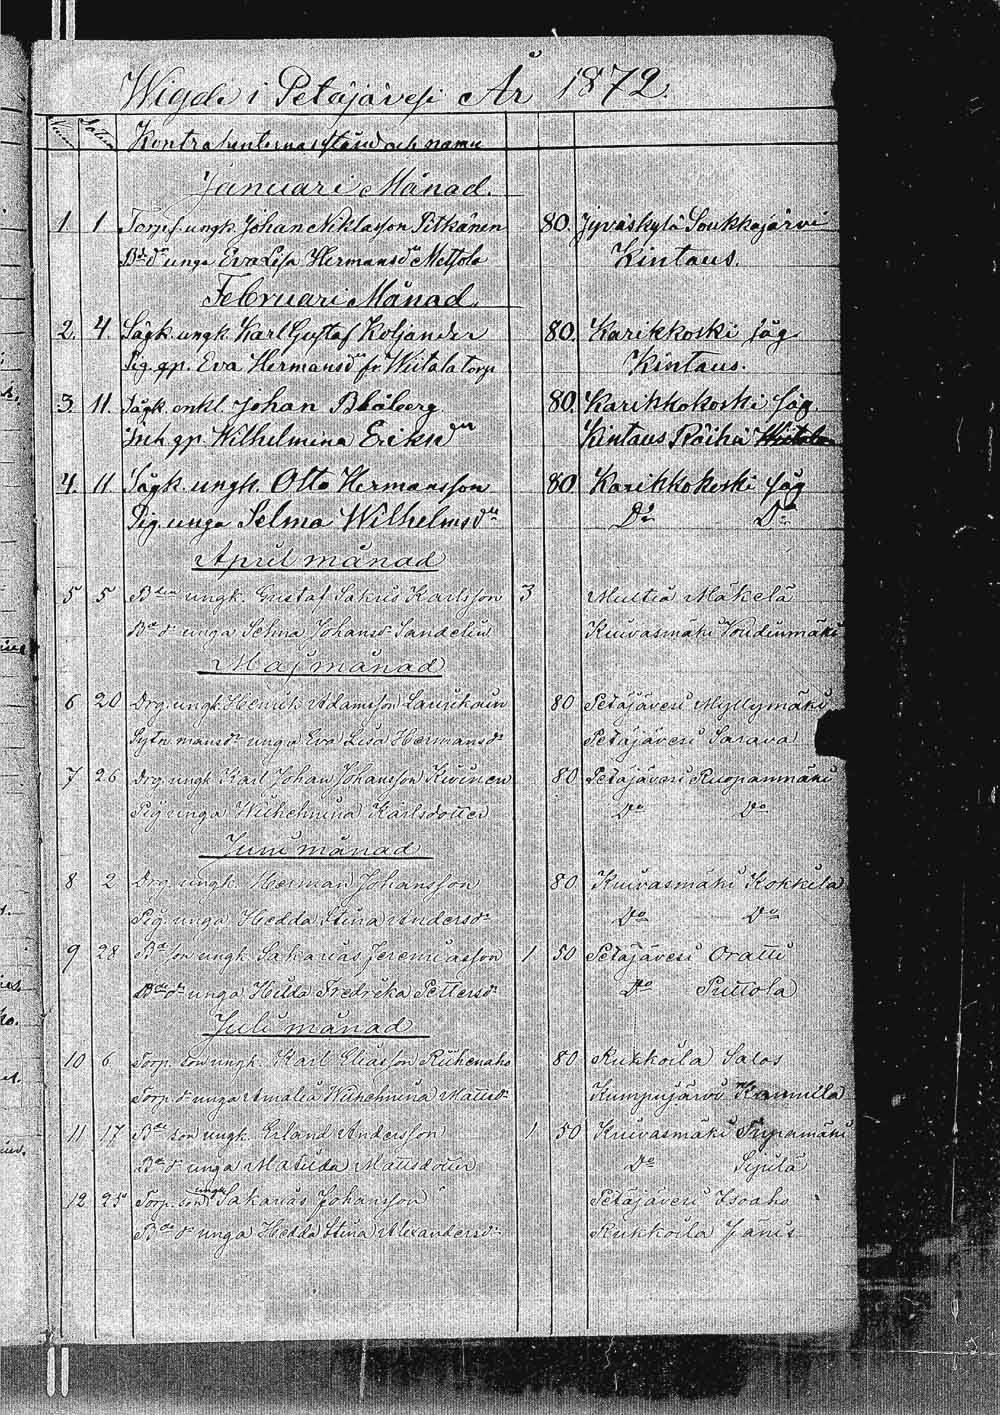 Wigde i Petäjävesi År 1872.
Num Datum Kontrahenternas stånd och namn
Januari Månad.
1 1 Torp.s. ungk. Johan Niklasson Pitkänen 80. Jyväskylä Soukkajärvi
Bde dr unga Eva Lisa Hermansdr Metsola Kintaus.
Februari Månad.
2. 4. Sågk. ungk. Karl Gustaf Koljander 80. Karikkoski såg
Pig. qp. Eva Hermansdr fr. Wiitala torp Kintaus.
3. 11. Sågk. enkl. Johan Blåberg 80. Karikkokoski såg.
Inh. qp. Wilhelmina Eriksdr Kintaus Räihä
4. 11 Sågk. ungk. Otto Hermansson 80 Karikkokoski såg
Pig. unga Selma Wilhelmsdr Do Do
April månad
5 5 Bden ungk. Gustaf Sakris Karlsson 3 Multia Mäkelä
Bde dr unga Selma Johansdr Sandelin Kuivasmäki Voudinmäki
Maj månad
6 20 Drg. ungk. Henrik Adamsson Laurikain 80 Petäjävesi Myllymäki
Sytn. mansdr unga Eva Lisa Hermansdr Petäjävesi Sarava
7 26 Drg. ungk. Karl Johan Johansson Kivinen 80 Petäjävesi Ruopanmäki
Pig unga Wilhelmina Karlsdotter Do Do
Juni månad
8 2 Drg. ungk. Herman Johansson 80 Kuivasmäki Kokkila
Pig. unga Hedda Stina Andersdr Do Do
9 28 Bde son ungk. Sakarias Jeremiasson 1 50 Petäjävesi Oratti
Bde dr unga Hilda Fredrika Pettersdr Do Puttola
Juli månad
10 6 Torp. son ungk. Karl Eliasson Riihenaho 80 Kukkoila Salos
Torp. dr unga Amalia Wilhelmina Mattsdr Kumpujärvi
11 17 Bde son ungk. Erland Andersson 1 50 Kuivasmäki
Bde dr unga Matilda Mattsdotter Do Sipilä
12 25 Torp. son ungk. Sakarias Johansson Petäjävesi Isoaho
Bde dr unga Hedda Stina Alexandersdr Kukkoila Jänis